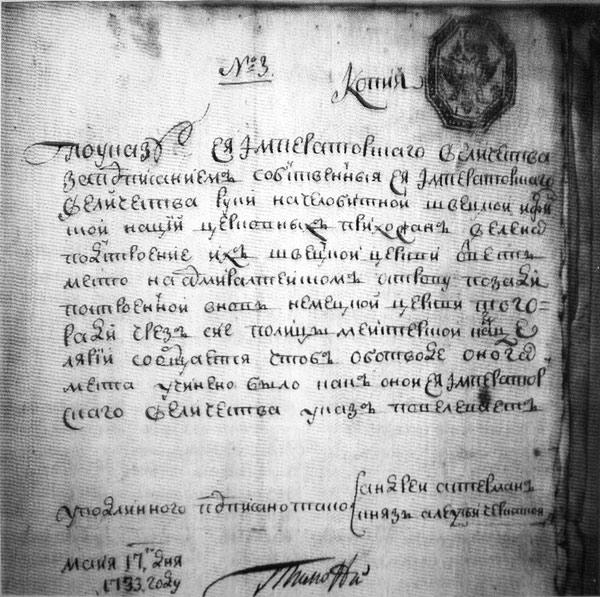 № 3.
Копия
По указу ея Императорскаго величества
за подписаниемъ собственныя ея Императорскаго
величества руки на челобитной швецкой и фин
ской наций церковныхъ прихожан велено
под строение ихъ швецкой церкви отвесть
место на адмиралтейскомъ острову позади
построенной вновь немецкой церкви и того
ради чрез сие полицымейстерской канце
лярии сообщается чтобъ об отводе оного
места учинено было какъ оной ея Император
скаго величества указъ повелеваетъ
у подлинного подписано тако андреи остерманъ
князь алексеи черкаской
маия 17 дня
1733 году